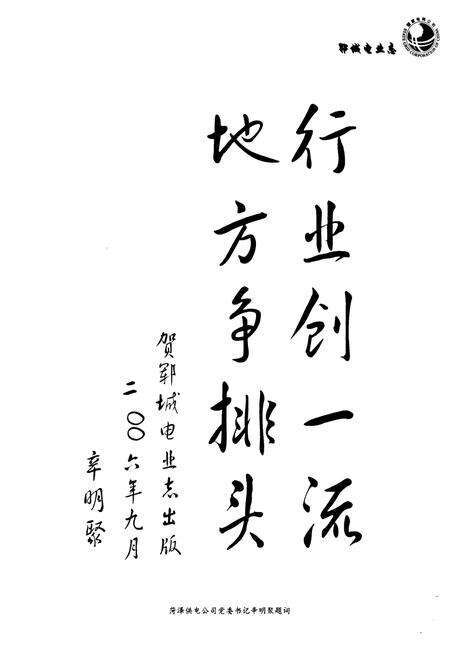 郓城电业志
行业创一流
地方争排头
贺郓城电业志出版
二〇〇六年九月
辛明聚
菏泽供电公司党委书记辛明聚题词